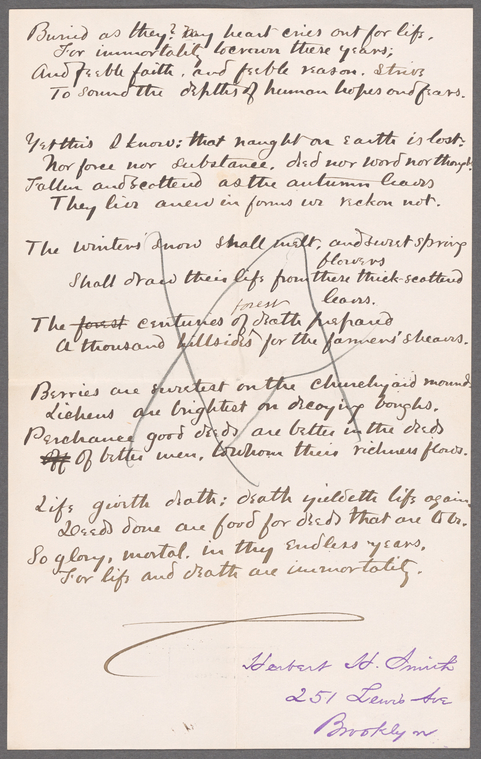 Buried as they? My heart cries out for life,
For immortality to crown these years;
And feeble faith, and feeble reason, strive
To sound the depths of human hopes and fears.
Yet this I know: that naught on earth is lost.
Nor force nor substance, deed nor word nor thought.
Fallen and scattered as the autumn leaves
They live anew in forms we reckon not.
The winters' snow shall melt, and sweet spring
flowers
Shall draw their life from these thick-scattered
leaves.
forest
The forest centuries of death prepared
A thousand hillsides for the farmers' sheaves.
Berries are sweetest on the churchyard mound
Lichens are brightest on decaying boughs.
Perchance good deeds are better in the deeds
Of better men, to whom their richness flows.
Life giveth death; death yieldeth life again
Deeds done are food for deeds that are to be.
So glory, mortal, in thy endless years,
For life and death are immortality.
Herbert H. Smith
251 Lewis Ave
Brooklyn